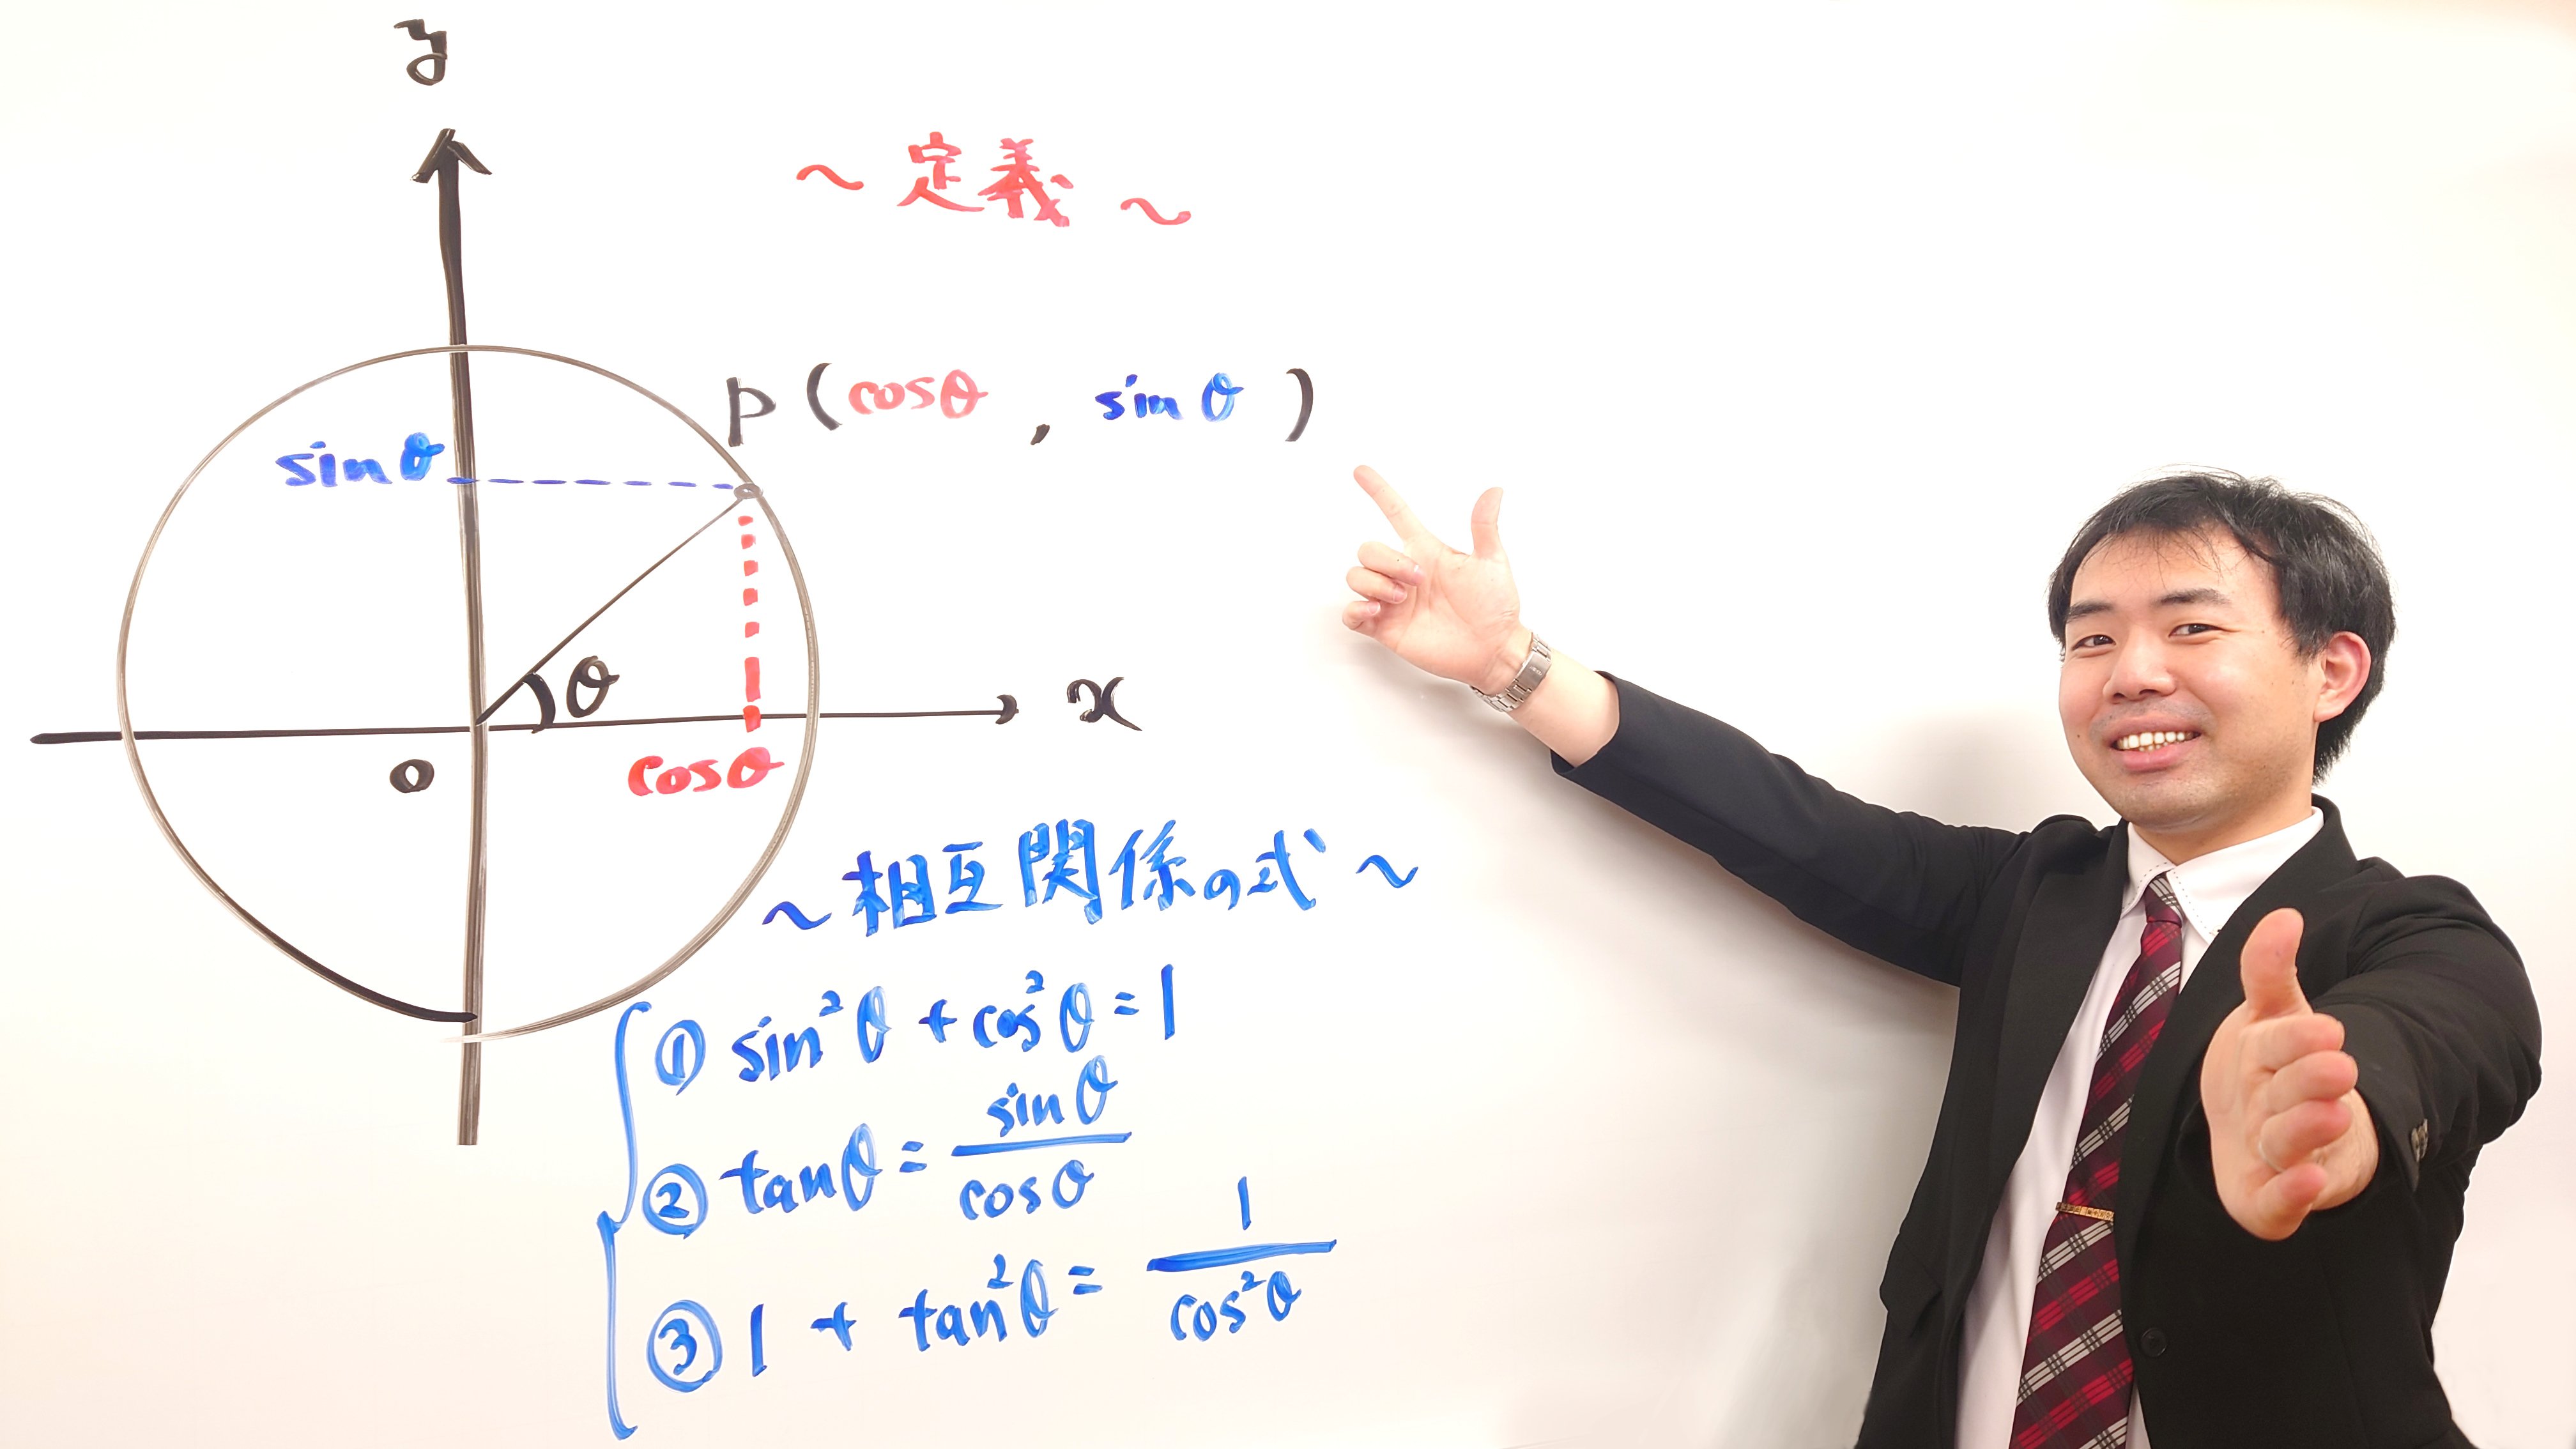 y
～定義～
P(cosθ, sinθ)
sinθ
θ
x
O
cosθ
～相互関係の式～
① sin²θ + cos²θ = 1
② tanθ = sinθ/cosθ
③ 1 + tan²θ = 1/cos²θ